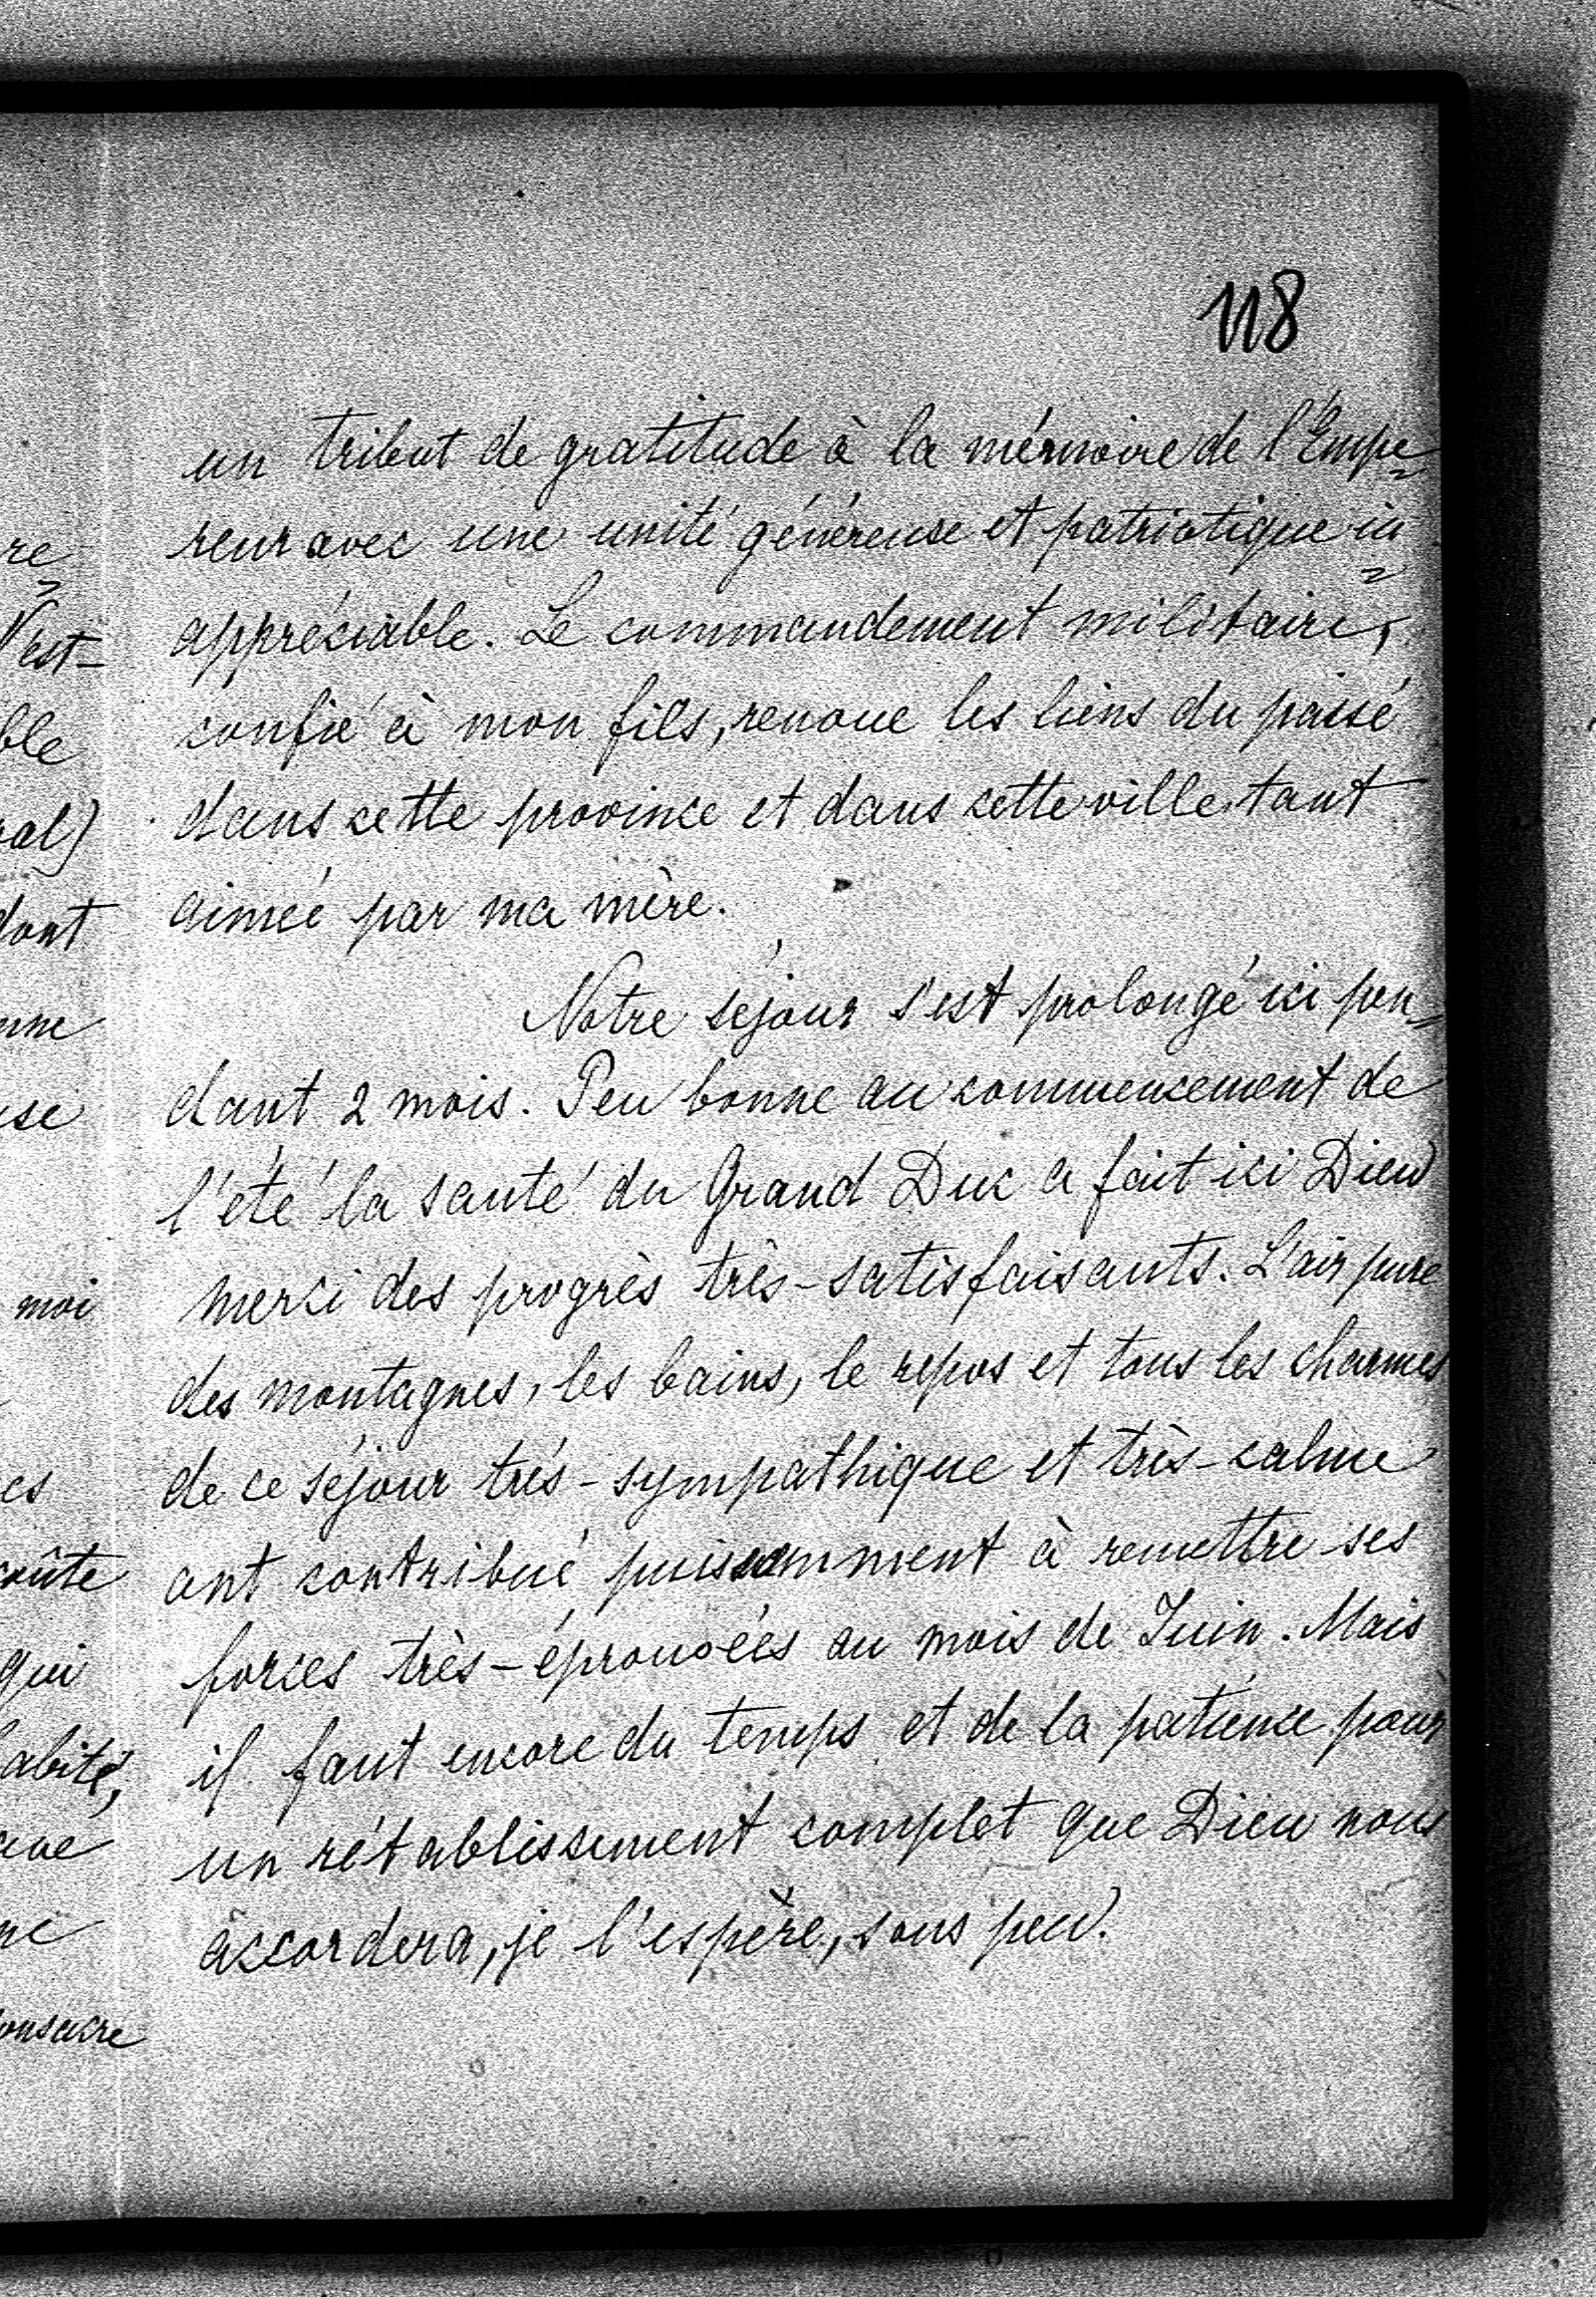 118
un tribut de gratitude à la mémoire de l'Empe=
reur avec une unité généreuse et patriotique in=
appréciable. Le commandement militaire,
confié à mon fils, renoue les liens du passé
dans cette province et dans cette ville tant
aimée par ma mère.
Notre séjour s'est prolongé ici pen=
dant 2 mois. Peu bonne au commencement de
l'été la santé du Grand Duc a fait ici Dieu
merci des progrès très-satisfaisants. L'air pure
des montagnes, les bains, le repos et tous les charmes
de ce séjour très-sympathique et très-calme
ont contribué puissamment à remettre ses
forces très-éprouvées au mois de Juin. Mais
il faut encore du temps et de la patience pour
un rétablissement complet que Dieu nous
accordera, je l'espère, sous peu.
re=
N'est-
ble
al)
dont
nne
se
moi
es
coûte
qui
abité,
ave
ne
consacre